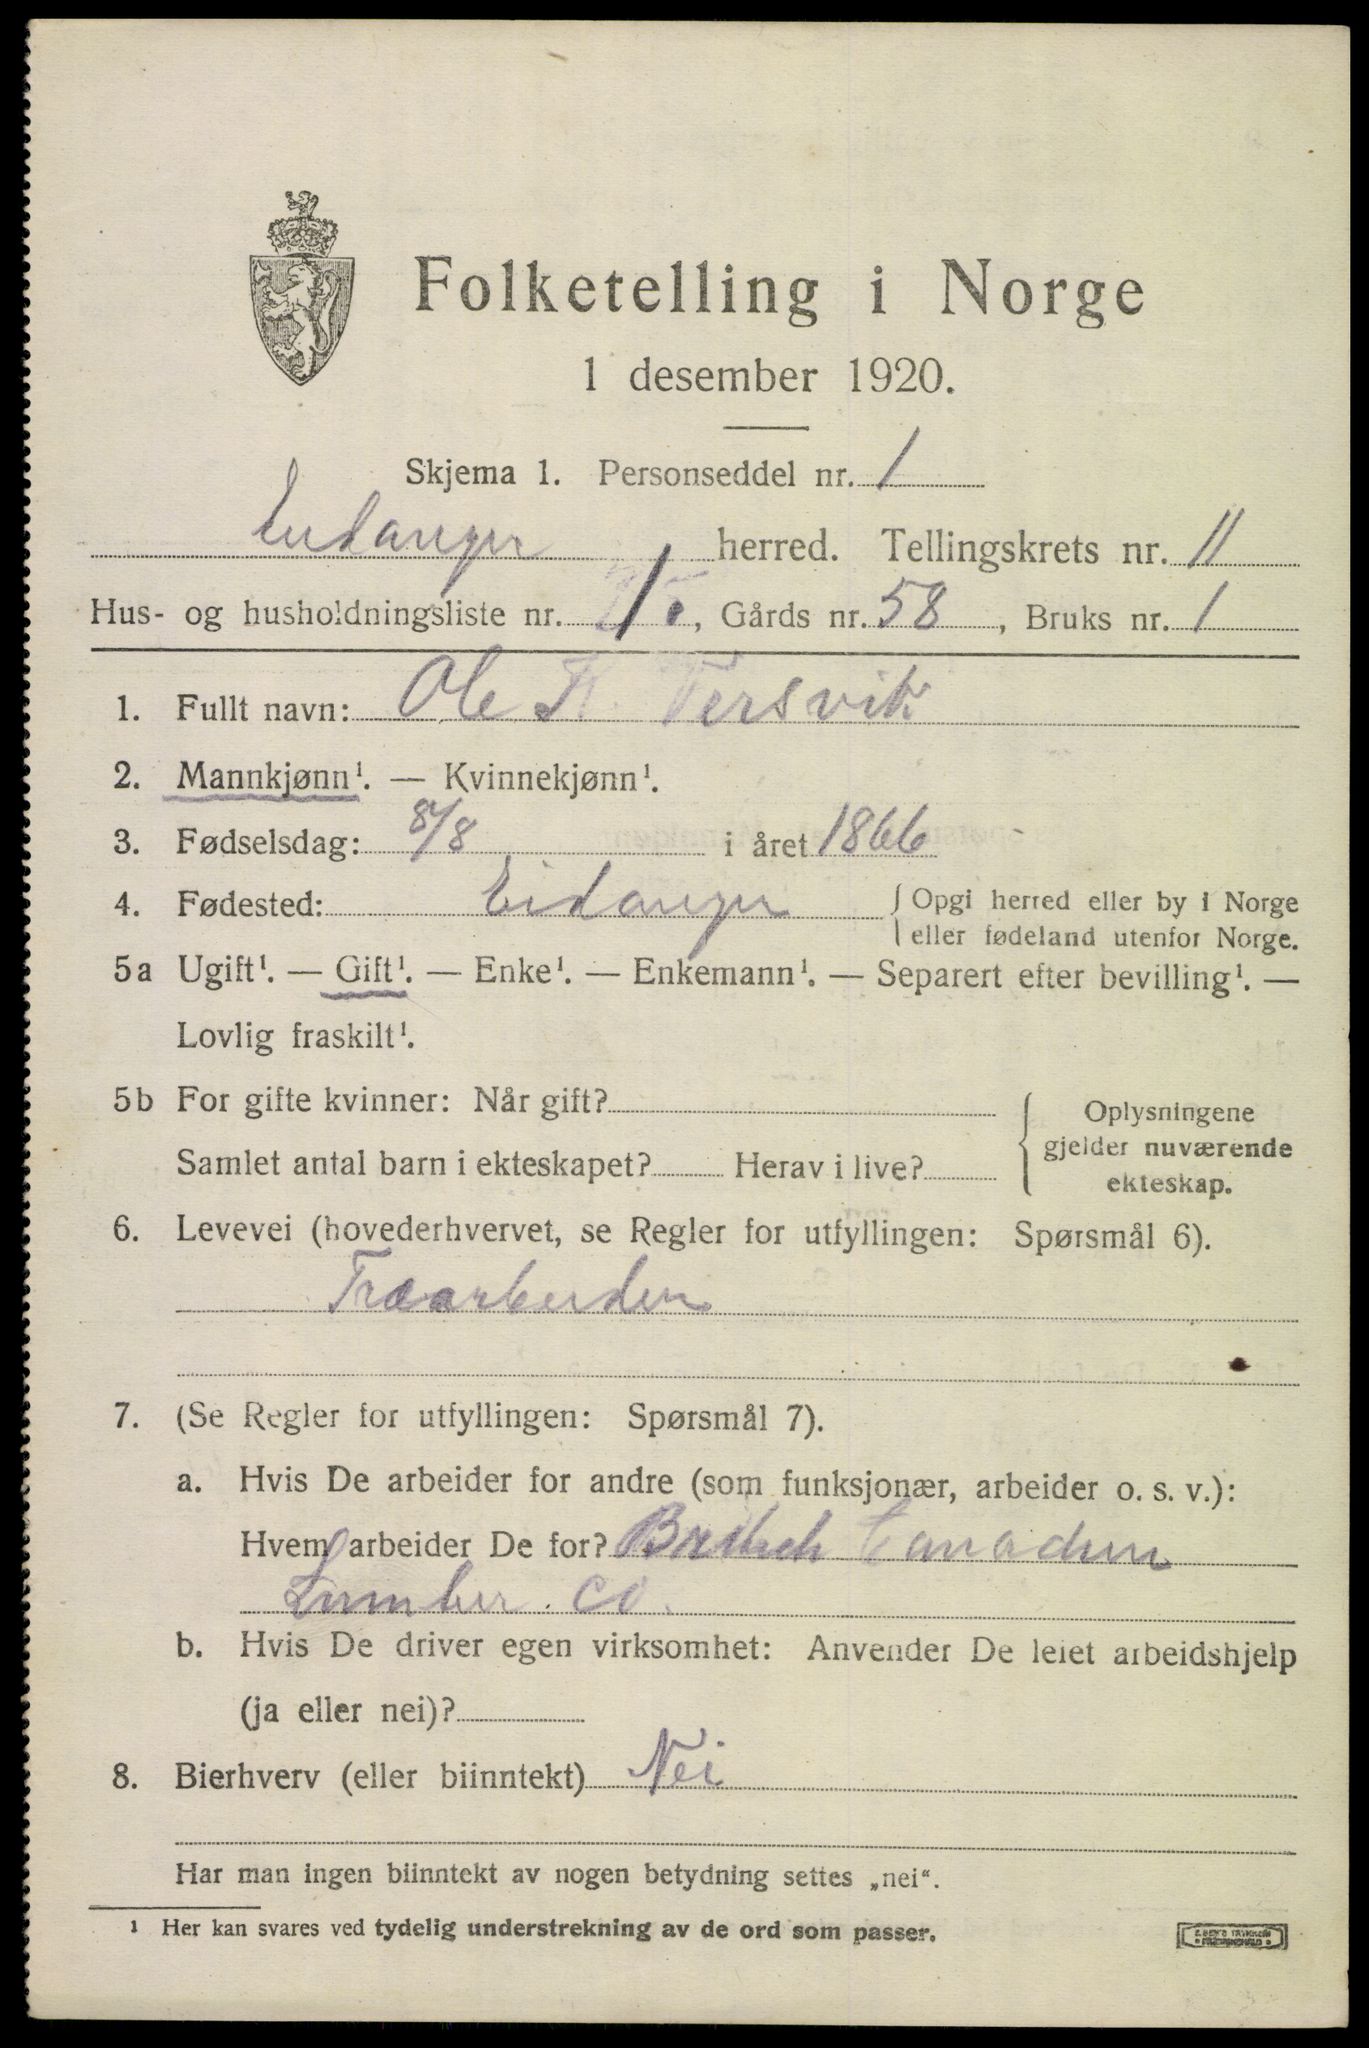 Folketelling i Norge
1 desember 1920.
Skjema 1. Personseddel nr. 1
Eidanger herred. Tellingskrets nr. 11
Hus- og husholdningsliste nr. , Gårds nr. 58, Bruks nr. 1
1. Fullt navn: Ole K. Versvik
2. Mannkjønn¹. — Kvinnekjønn¹.
3. Fødselsdag: 8/8 i året 1866
4. Fødested: Eidanger { Opgi herred eller by i Norge
eller fødeland utenfor Norge.
5a Ugift¹. — Gift¹. — Enke¹. — Enkemann¹. — Separert efter bevilling¹. —
Lovlig fraskilt¹.
5b For gifte kvinner: Når gift?
Samlet antal barn i ekteskapet? Herav i live?
{ Oplysningene
gjelder nuværende
ekteskap.
6. Levevei (hovederhvervet, se Regler for utfyllingen: Spørsmål 6).
Træarbeider
7. (Se Regler for utfyllingen: Spørsmål 7).
a. Hvis De arbeider for andre (som funksjonær, arbeider o. s. v.):
Hvem arbeider De for? Canadien
Lumber. Co.
b. Hvis De driver egen virksomhet: Anvender De leiet arbeidshjelp
(ja eller nei)?
8. Bierhverv (eller biinntekt) Nei
Har man ingen biinntekt av nogen betydning settes „nei“.
¹ Her kan svares ved tydelig understrekning av de ord som passer.